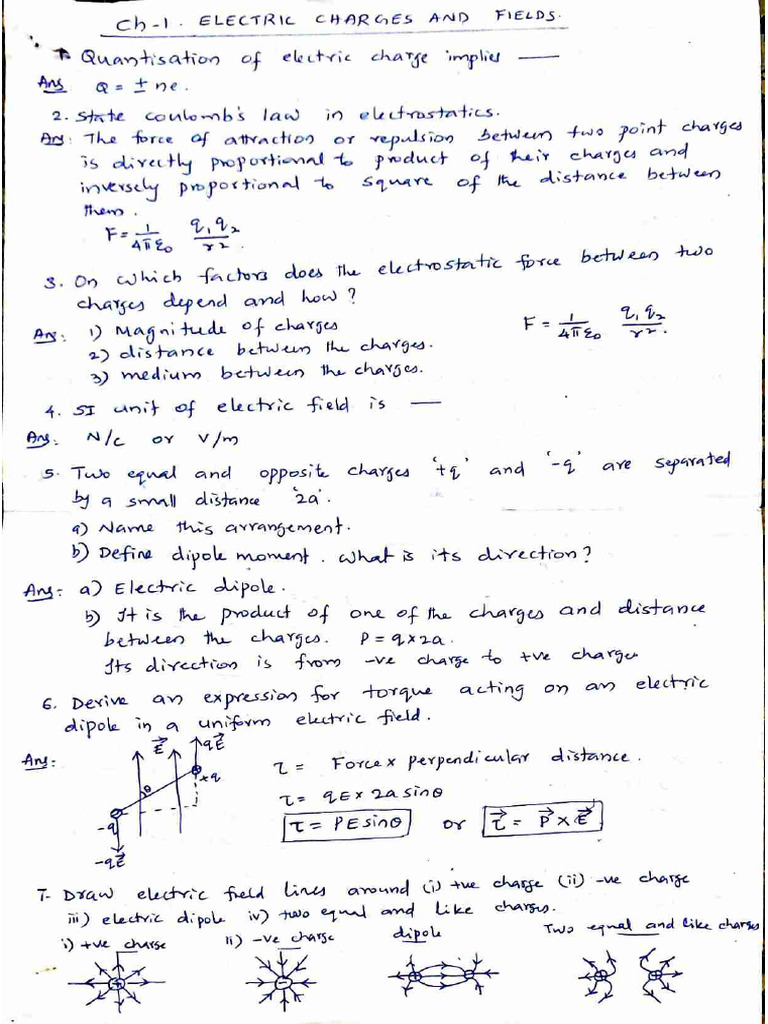 Ch-1. ELECTRIC CHARGES AND FIELDS.
1. Quantisation of electric charge implies —
Ans Q = ± ne.
2. State coulomb's law in electrostatics.
An: The force of attraction or repulsion between two point charges
is directly proportional to product of their charges and
inversely proportional to square of the distance between
them.
F = 1/4πε0 q1q2/r2.
3. On which factors does the electrostatic force between two
charges depend and how?
Ans: 1) Magnitude of charges F = 1/4πε0 q1q2/r2.
2) distance between the charges.
3) medium between the charges.
4. SI unit of electric field is —
Ans: N/c or V/m
5. Two equal and opposite charges '+q' and '-q' are separated
by a small distance '2a'.
a) Name this arrangement.
b) Define dipole moment. What is its direction?
Ans: a) Electric dipole.
b) It is the product of one of the charges and distance
between the charges. P = q x 2a.
Its direction is from -ve charge to +ve charge
6. Derive an expression for torque acting on an electric
dipole in a uniform electric field.
Ans:
E⃗ qE⃗
θ +q
-q
-qE⃗
τ = Force x perpendicular distance.
τ = qE x 2a sinθ
τ = PE sinθ or τ⃗ = P⃗ x E⃗
7. Draw electric field lines around (i) +ve charge (ii) -ve charge
iii) electric dipole iv) two equal and like charges.
i) +ve charge ii) -ve charge dipole Two equal and like charges
+ - + - + +